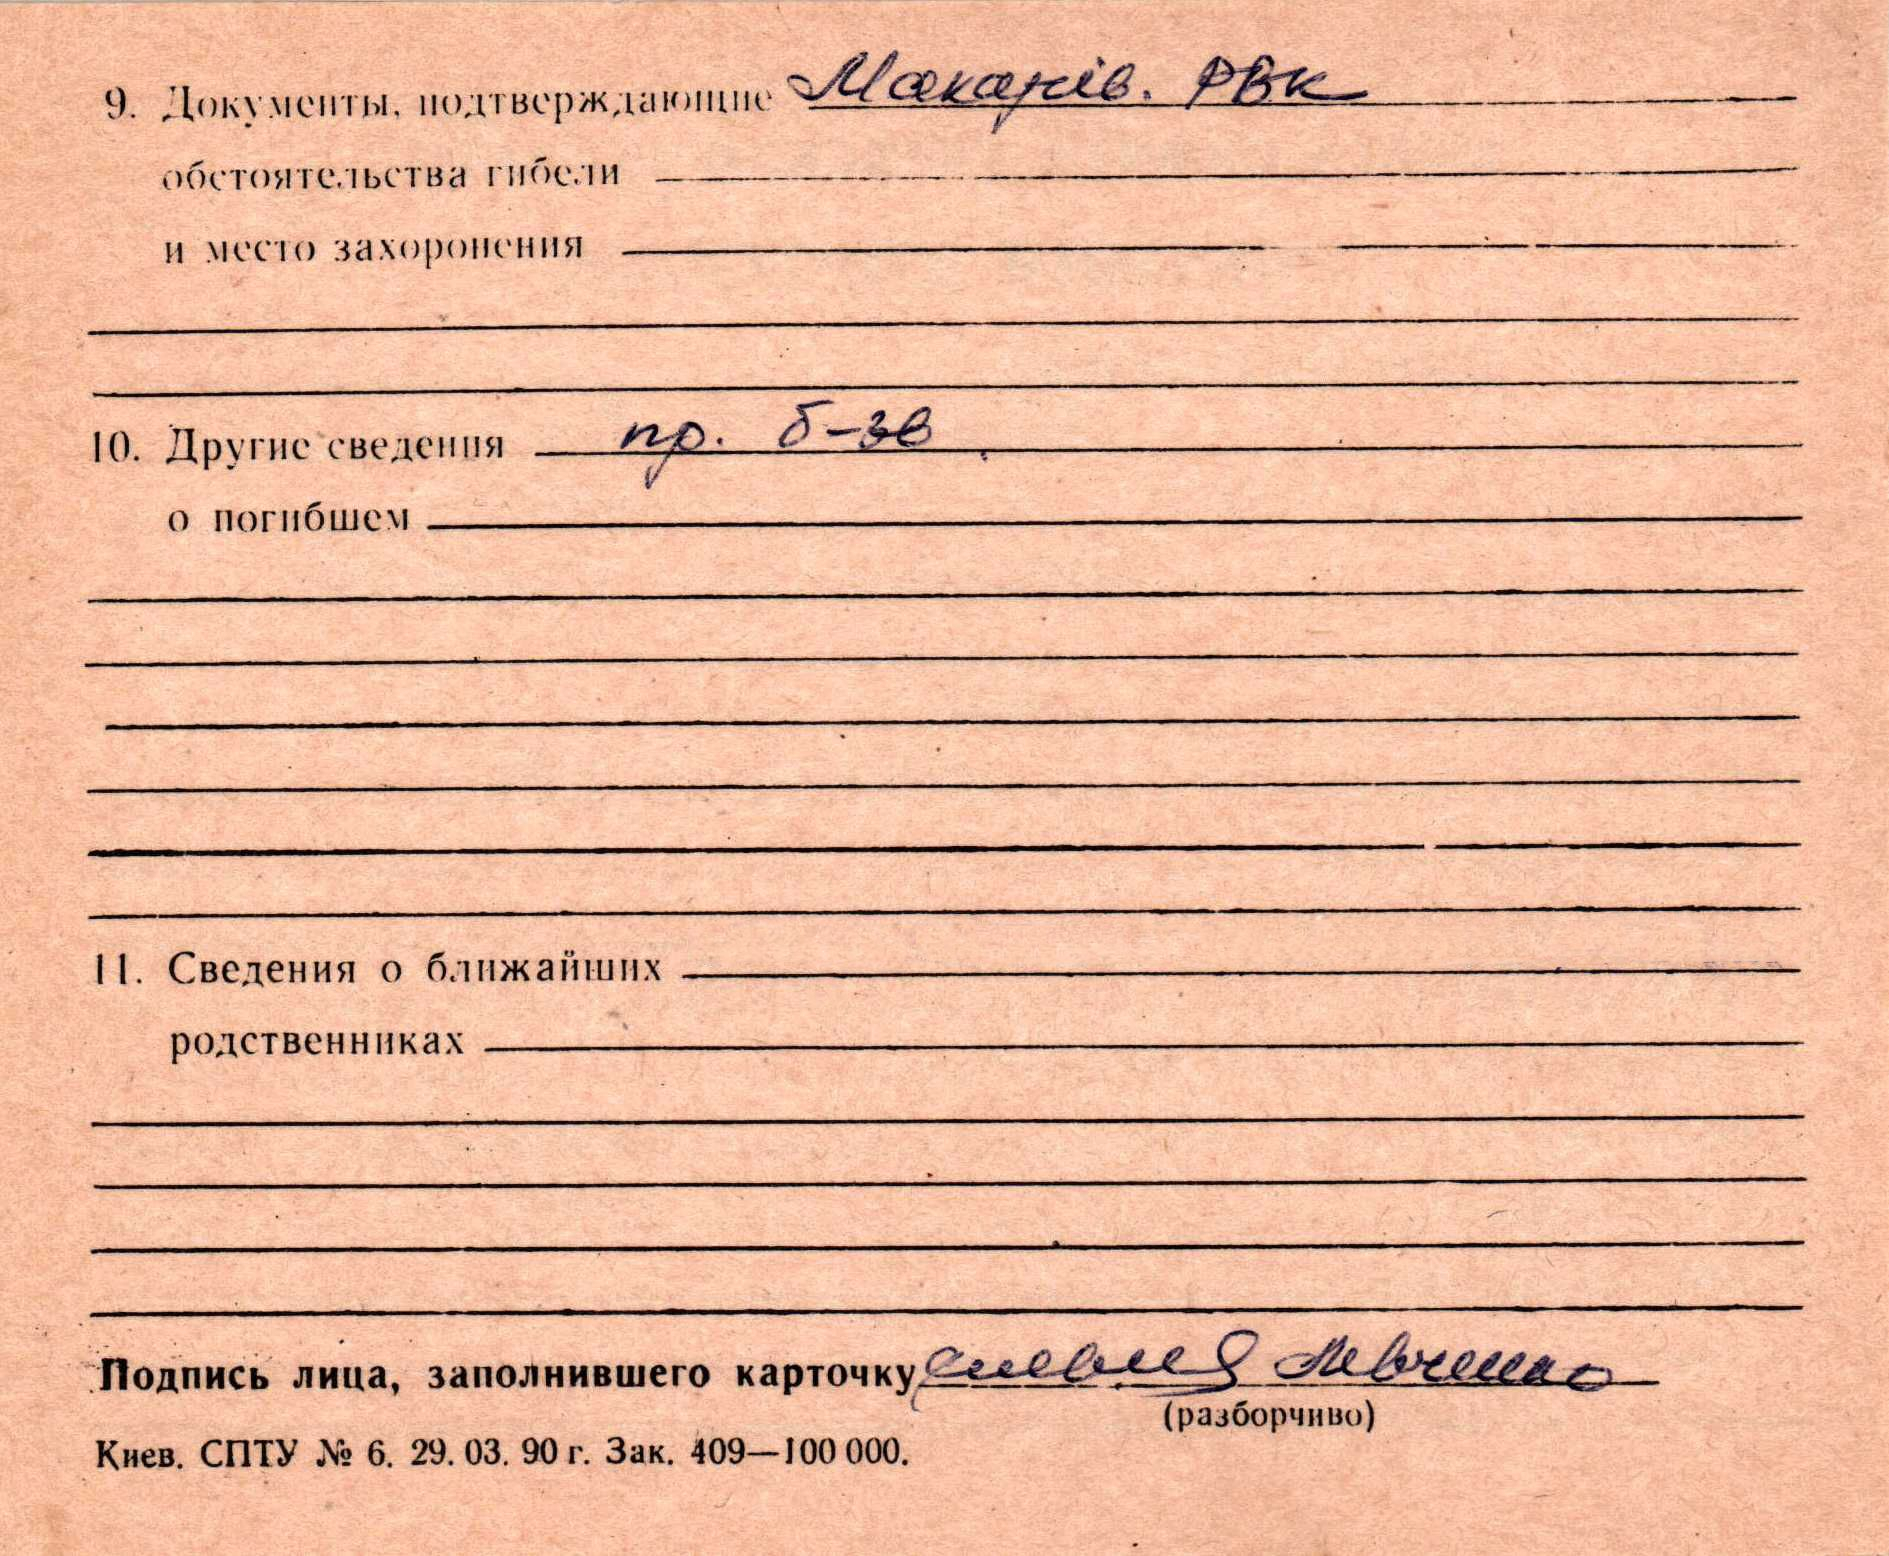 9. Документы, подтверждающие Макарів. РВК
обстоятельства гибели
и место захоронения
10. Другие сведения пр. б-зв
о погибшем
11. Сведения о ближайших
родственниках
Подпись лица, заполнившего карточку Левченко
(разборчиво)
Киев. СПТУ № 6. 29. 03. 90 г. Зак. 409—100 000.